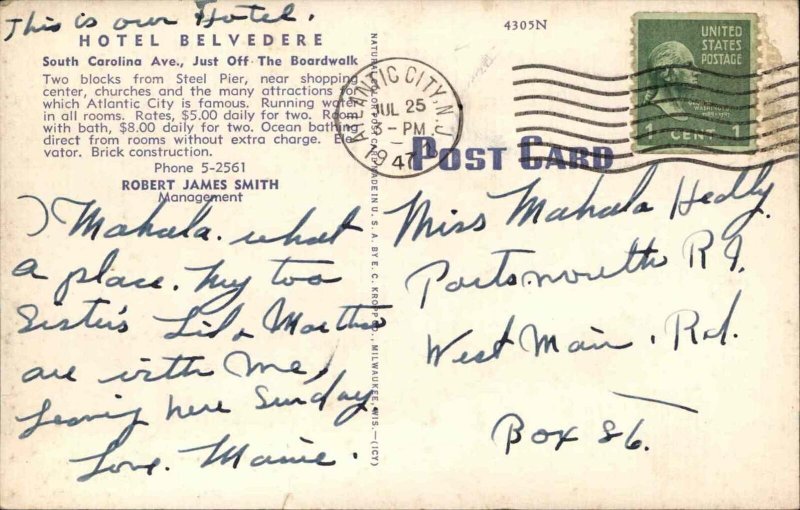 This is our Hotel.
HOTEL BELVEDERE
South Carolina Ave., Just Off The Boardwalk
Two blocks from Steel Pier, near shopping
center, churches and the many attractions for
which Atlantic City is famous. Running water
in all rooms. Rates, $5.00 daily for two. Room
with bath, $8.00 daily for two. Ocean bathing
direct from rooms without extra charge. Ele-
vator. Brick construction.
Phone 5-2561
ROBERT JAMES SMITH
Management
Mahala. what
a place. My too
Sister's Lil & Martha
are with me,
Leaving here Sunday.
Love. Mamie.
NATURAL COLOR POST CARD MADE IN U. S. A. BY E. C. KROPP CO., MILWAUKEE, WIS.—(ICY)
4305N
ATLANTIC CITY, N.J.
JUL 25
3-PM
1947
POST CARD
UNITED
STATES
POSTAGE
1 CENT 1
Miss Mahala Hedly.
Portsmouth R I.
West Main. Rd.
Box 86.